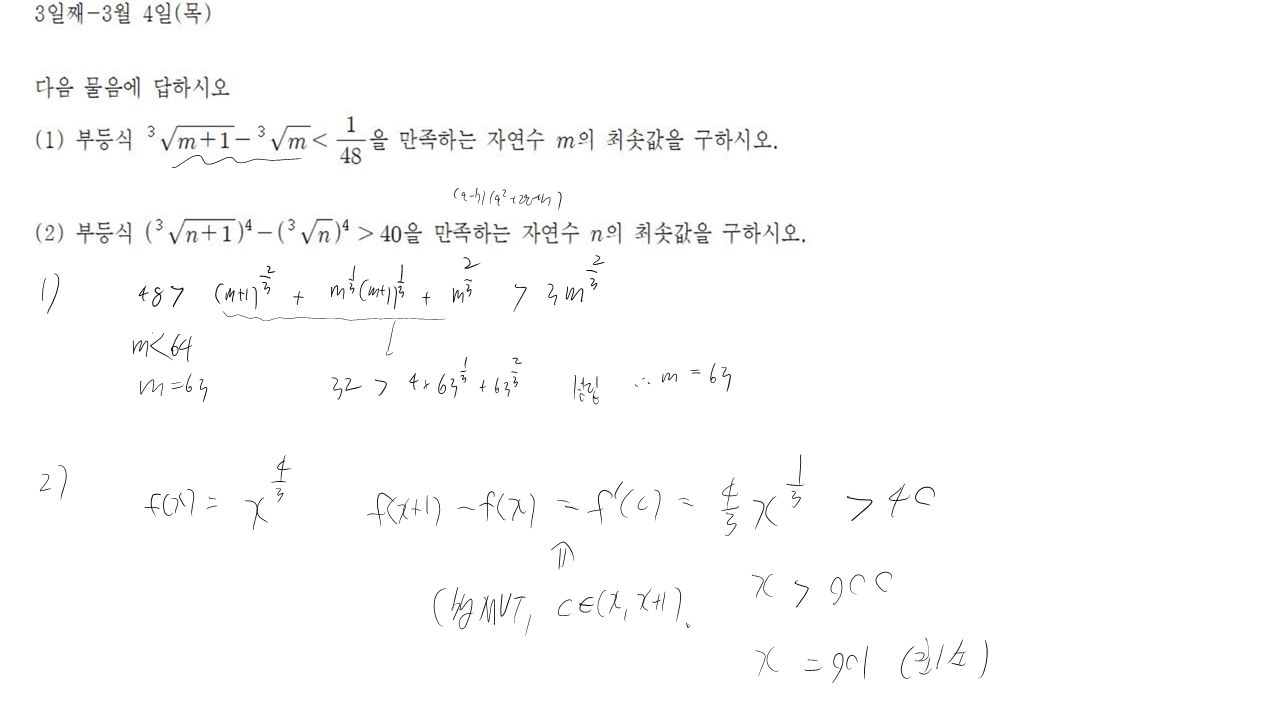 3일째-3월 4일(목)
다음 물음에 답하시오
(1) 부등식 ³√(m+1) - ³√m < 1/48 을 만족하는 자연수 m의 최솟값을 구하시오.
(2) 부등식 (³√(n+1))⁴ - (³√n)⁴ > 40을 만족하는 자연수 n의 최솟값을 구하시오.
1) 48 > (m+1)^(2/3) + m^(1/3)(m+1)^(1/3) + m^(2/3) > 3m^(2/3)
m<64
m=63 32 > 4×63^(1/3) + 63^(2/3) ∴ m = 63
2) f(x) = x^(4/3) f(x+1) - f(x) = f'(c) = 4/3 x^(1/3) > 40
⇑
(by MVT, c∈(x, x+1).
x > 900
x = 901 (최소)